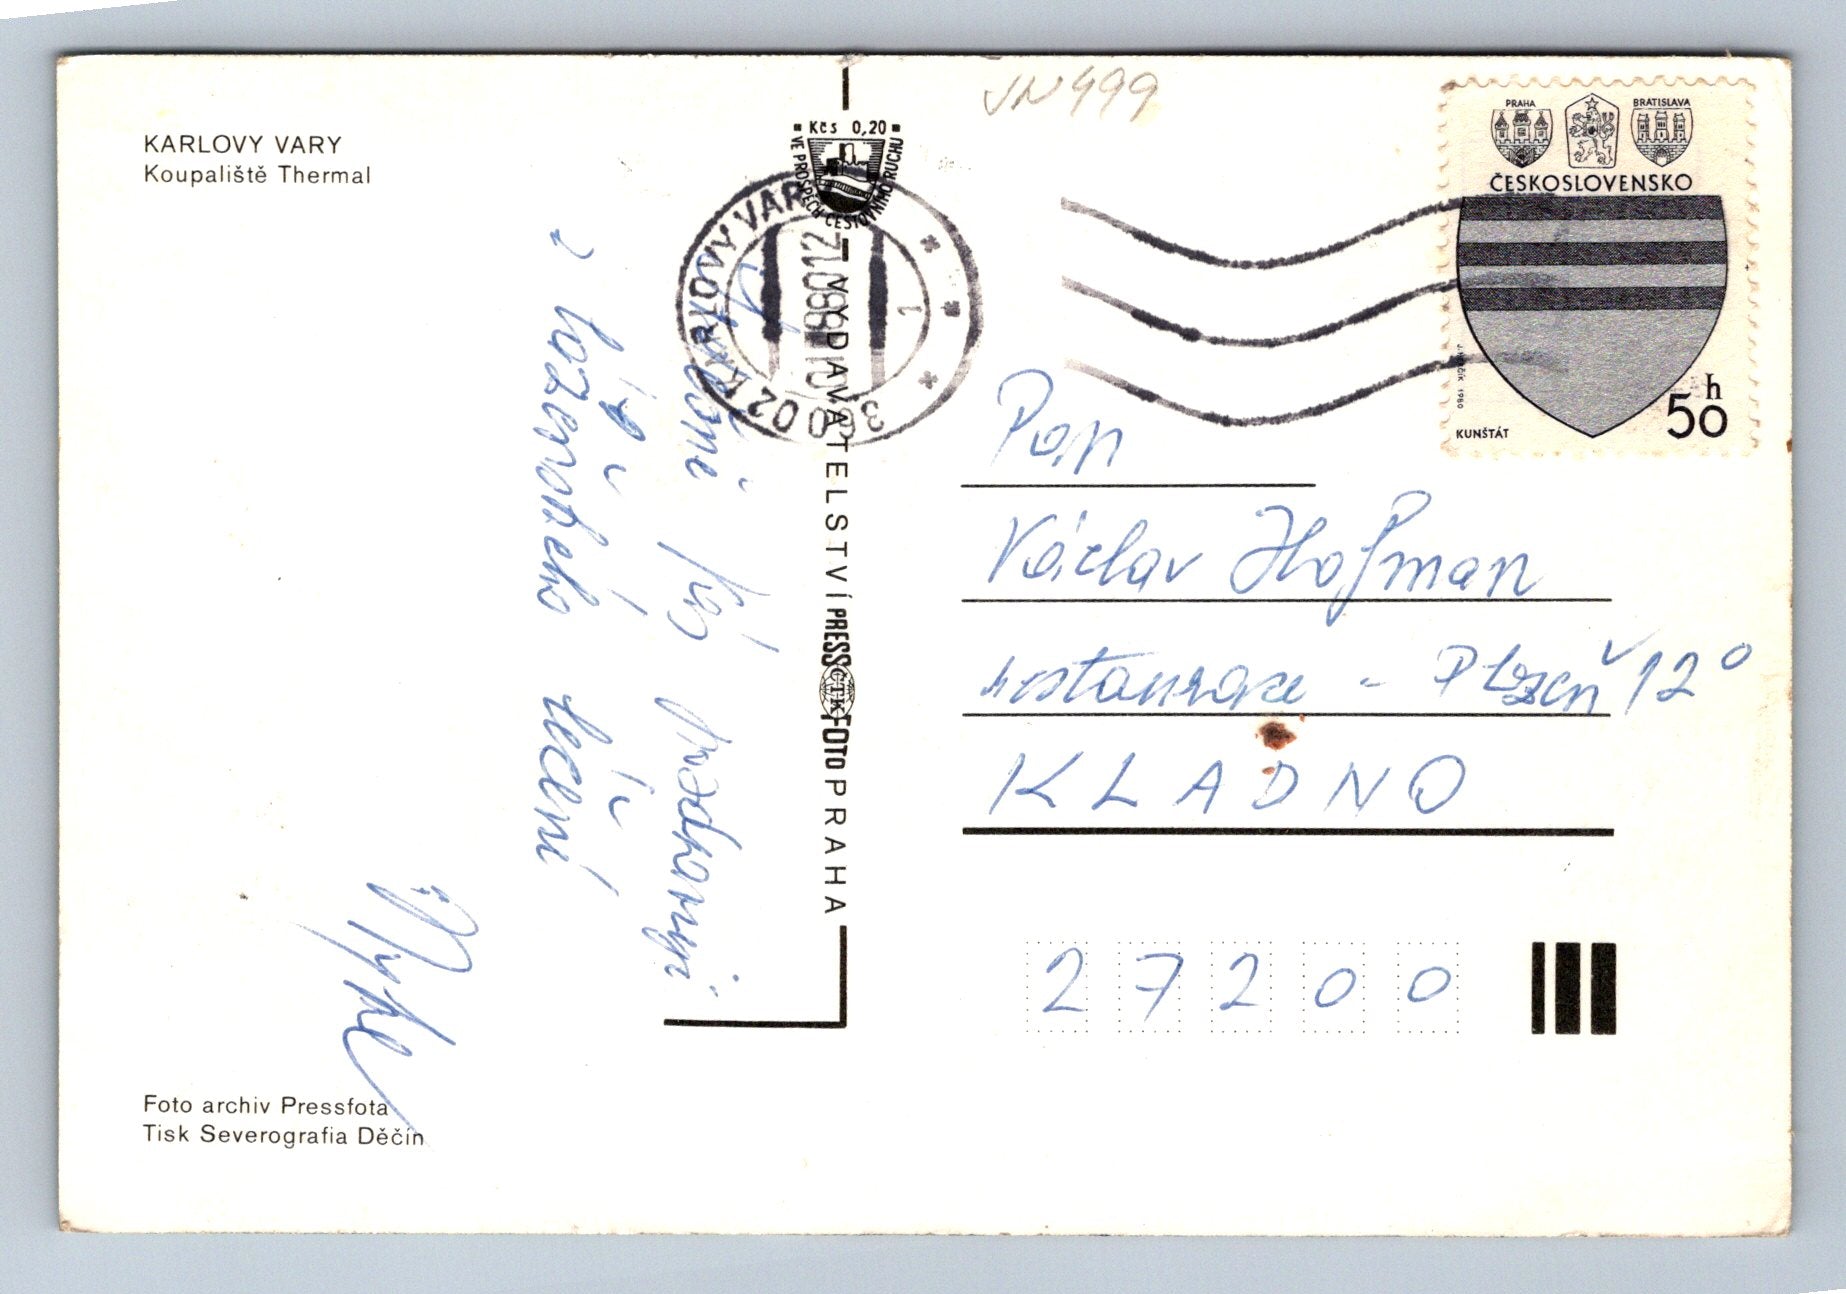 KARLOVY VARY
Koupaliště Thermal
Kčs 0,20
VE PROSPĚCH CESTOVNÍHO RUCHU
360 02 KARLOVY VARY
1
VYDAVATELSTVÍ PRESSFOTO PRAHA
ČTK
JN 499
PRAHA
BRATISLAVA
ČESKOSLOVENSKO
50 h
KUNŠTÁT
srdečně Vás pozdravuji
z lázeňského léčení
Pan
Václav Hofman
restaurace - Plzeň 12°
KLADNO
27200
Foto archiv Pressfota
Tisk Severografia Děčín